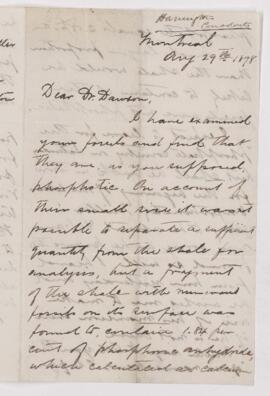 Harrington
Conodonts
Montreal
Aug 29th 1878
Dear Dr. Dawson,
I have examined
your fossils and find that
they are, as you supposed,
phosphatic. On account of
their small size it was not
possible to separate a sufficient
quantity from the shale for
analysis, but a fragment
of the shale with numerous
fossils on its surface was
found to contain 1.84 per
cent of phosphoric anhydride,
which calculated as calcic